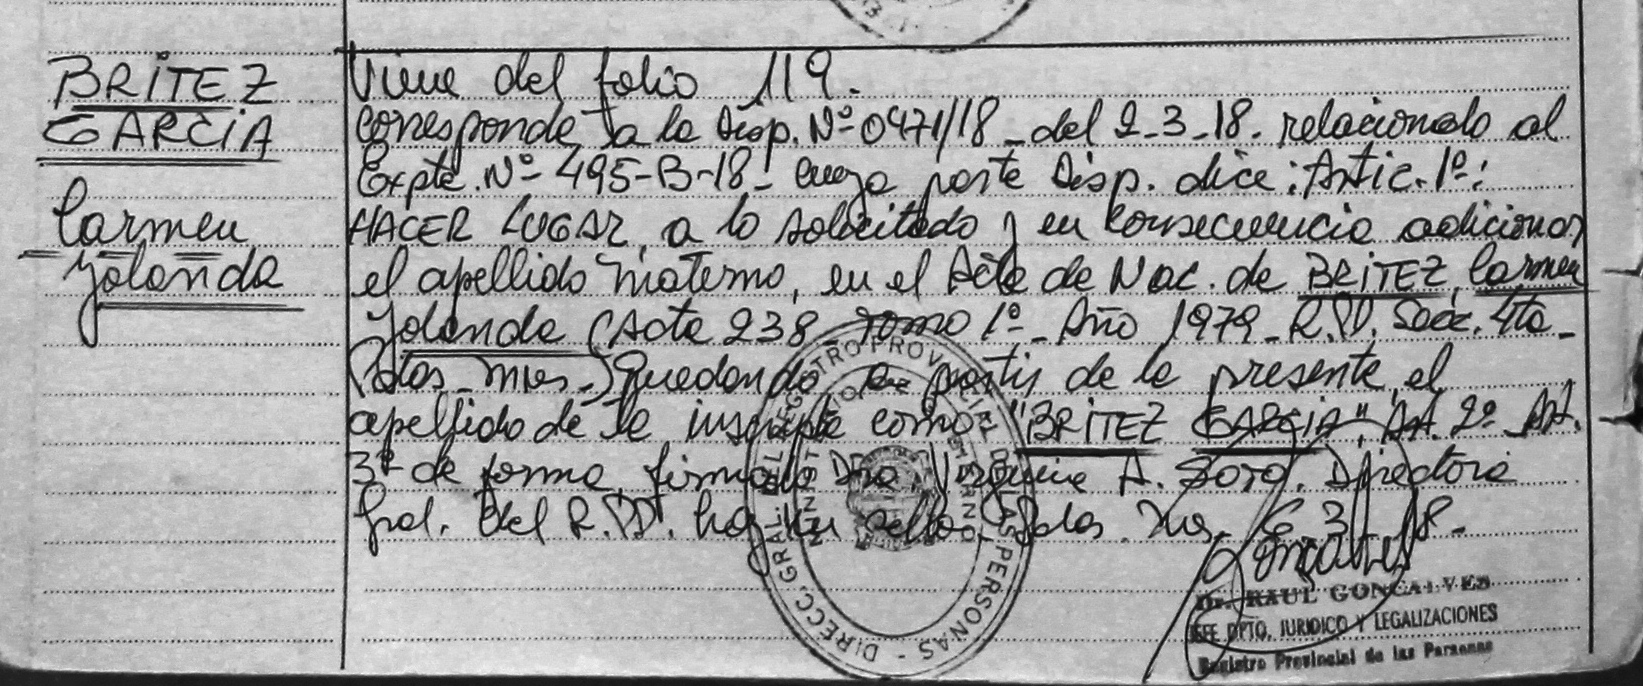 BRITEZ
GARCIA
Carmen
Yolanda
Viene del folio 119.
corresponde a la Disp. Nº 0471/18 - del 2-3-18. relacionado al
Expte. Nº 495-B-18 - cuya parte Disp. dice: Artic. 1º:
HACER LUGAR, a lo solicitado y en consecuencia adicionar
el apellido materno, en el Acta de Nac. de BRITEZ, Carmen
Yolanda (Acta 238 - Tomo 1º - Año 1979 - R.P.P. Secc. 4ta -
Pdas - Mnes -) Quedando a partir de la presente el
apellido de la inscripta como: "BRITEZ GARCIA", Art. 2º Art.
3º de forma, firmado Dra. A. Soto. Directora
Gral. del R.P.P. hay un sello - Pdas. Mes. 6-3-18.
DIRECC. GRAL. DEL REGISTRO PROVINCIAL DE LAS PERSONAS -
Gonçalves
Dr. RAUL GONCALVES
JEFE DPTO. JURIDICO Y LEGALIZACIONES
Registro Provincial de las Personas